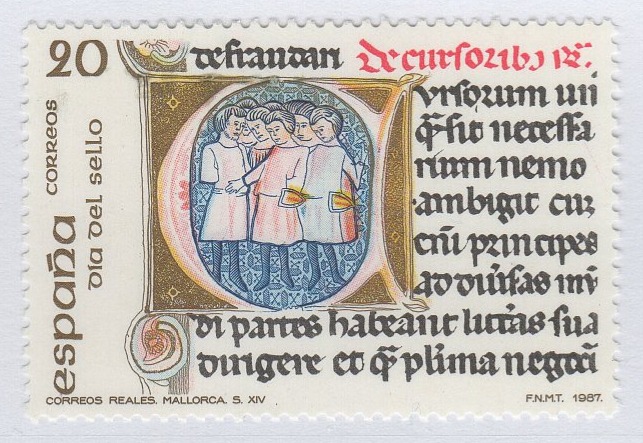 20
CORREOS
españa
día del sello
defraudari De cursorib₃
ursorum uti
q̄ sit necessa
rium nemo
ambigit cu₃
cū principes
ad diūsas mū
di partes habeant litt̄as sua
dirigere et q̄ pl̄ima negoci
CORREOS REALES. MALLORCA. S. XIV
F.N.M.T. 1987.